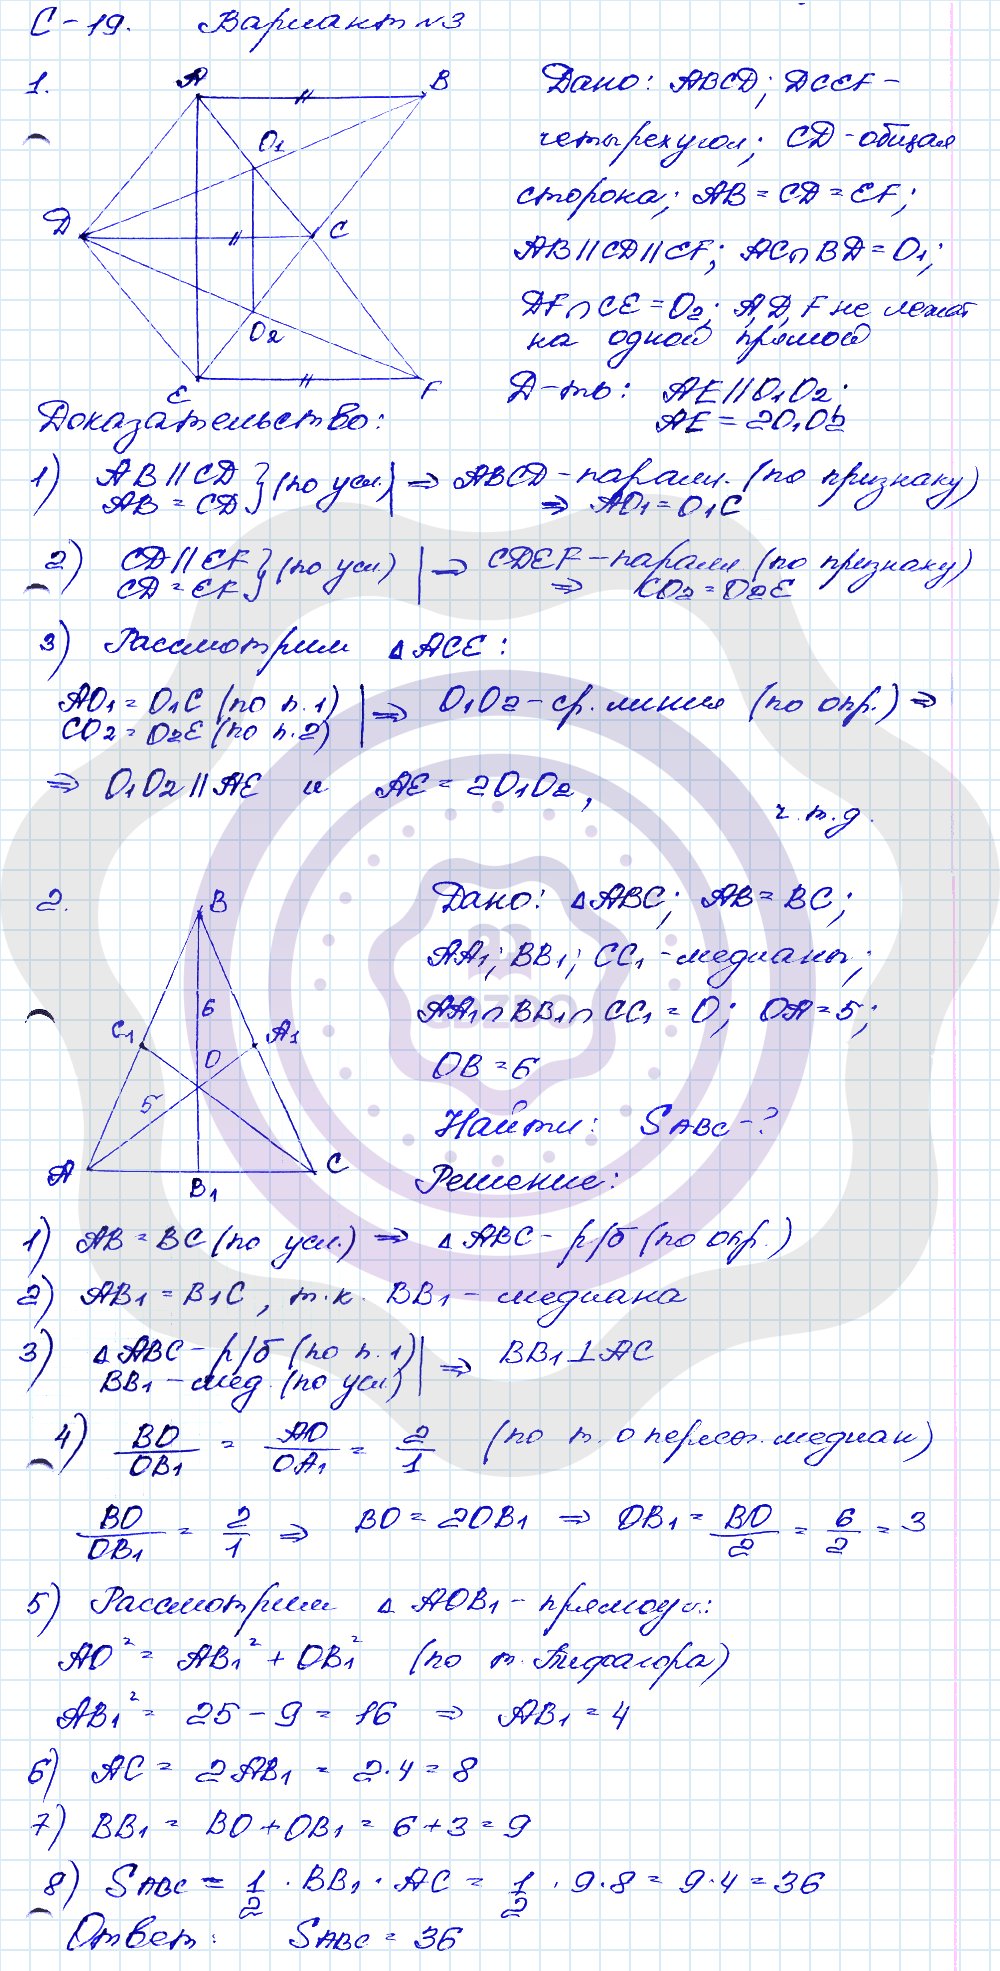 С-19. Вариант №3
1.
A
B
O1
D
C
O2
E
F
Дано: ABCD; DCEF -
четырехугол; CD - общая
сторона; AB = CD = EF;
AB || CD || EF; AC ∩ BD = O1;
DF ∩ CE = O2; A, D, F не лежат
на одной прямой
Д-ть: AE || O1O2;
AE = 2O1O2
Доказательство:
1) AB || CD } (по усл.) | ⇒ ABCD - паралл. (по признаку)
AB = CD ⇒ AO1 = O1C
2) CD || EF } (по усл.) | ⇒ CDEF - паралл (по признаку)
CD = EF ⇒ CO2 = O2E
3) Рассмотрим △ACE:
AO1 = O1C (по п.1) | ⇒ O1O2 - ср. линия (по опр.) ⇒
CO2 = O2E (по п.2)
⇒ O1O2 || AE и AE = 2O1O2,
ч.т.д.
2.
B
6
C1
A1
O
5
A
C
B1
Дано: △ABC; AB = BC;
AA1; BB1; CC1 - медианы;
AA1 ∩ BB1 ∩ CC1 = O; OA = 5;
OB = 6
Найти: SABC - ?
Решение:
1) AB = BC (по усл.) ⇒ △ABC - р/б (по опр.)
2) AB1 = B1C, т.к. BB1 - медиана
3) △ABC - р/б (по п.1) | ⇒ BB1 ⊥ AC
BB1 - мед. (по усл)
4) BO/OB1 = AO/OA1 = 2/1 (по т. о пересеч. медиан)
BO/OB1 = 2/1 ⇒ BO = 2OB1 ⇒ OB1 = BO/2 = 6/2 = 3
5) Рассмотрим △AOB1 - прямоуг.:
AO² = AB1² + OB1² (по т. Пифагора)
AB1² = 25 - 9 = 16 ⇒ AB1 = 4
6) AC = 2AB1 = 2·4 = 8
7) BB1 = BO + OB1 = 6 + 3 = 9
8) SABC = 1/2 · BB1 · AC = 1/2 · 9·8 = 9·4 = 36
Ответ: SABC = 36